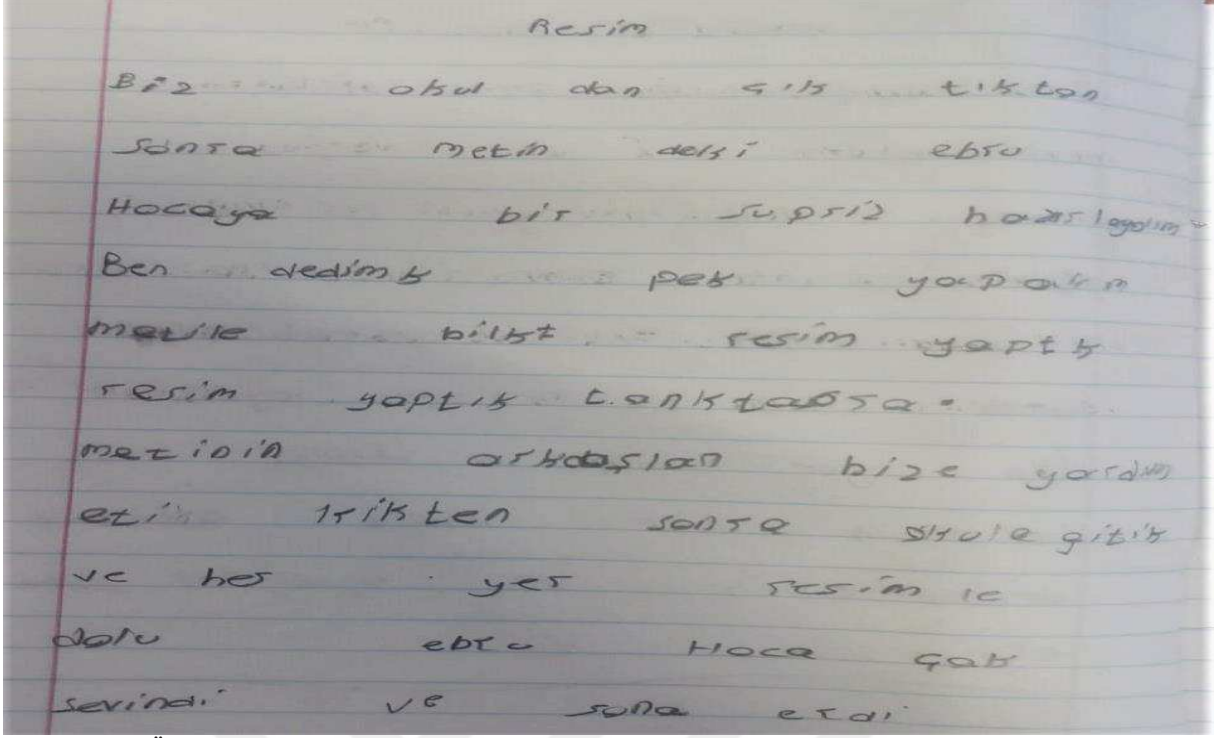 Resim
Biz okul dan çık tıktan
Sonra metin deki ebru
Hocaya bir supriz
Ben dedimk pek yapalım
metile bilkt resim yaptk
resim yaptık tanktaosra.
metinin arkdaşlan bize yardım
eti irikten sonra okula gitik
ve her yer resim le
dolu ebru Hoca çok
sevindi ve sona erdi